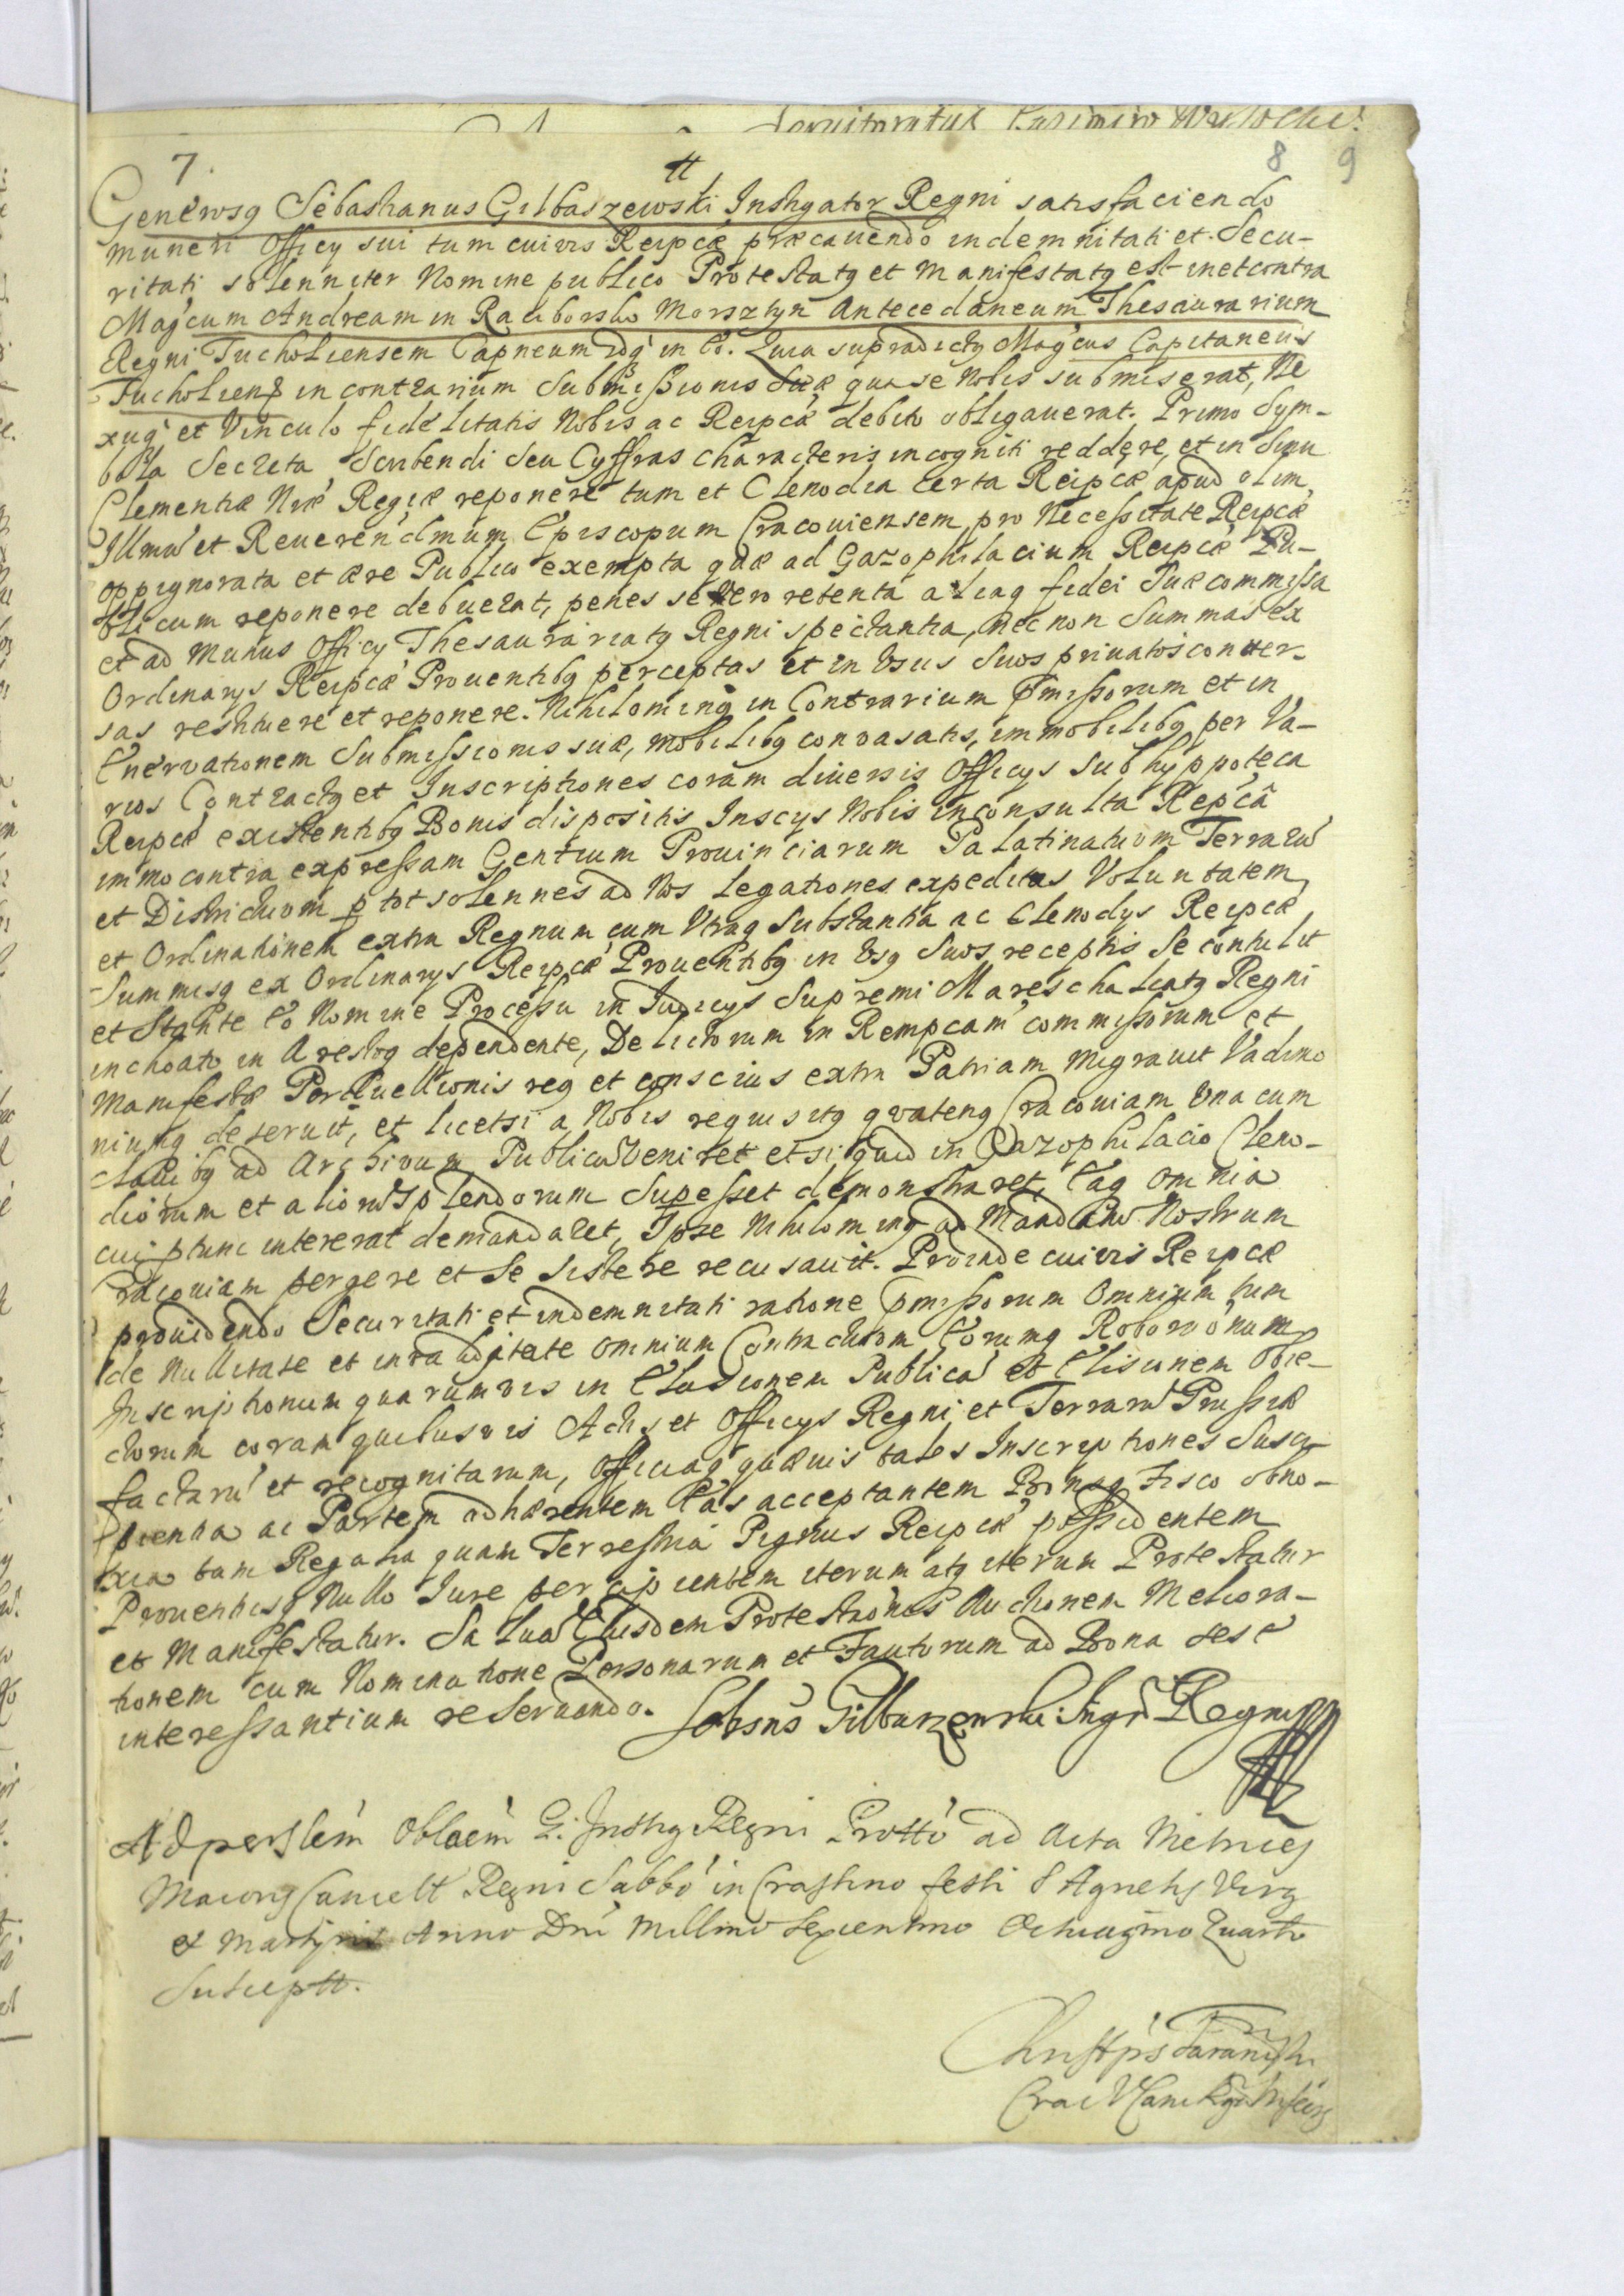 7. # 8 9
Generosq Sebastianus Gilbaszewski Instigator Regni satisfaciendo
muneri Officy sui tum cuivis Reipcæ præcauendo indemnitati et Secu-
ritati solenniter Nomine publico Protestatq et manifestatq est in et contra
Magcum Andream in Raciborsko Morsztyn Antecedaneum Thesaurarium
Regni Tucholiensem Capneum Idq in Eo. Quia supradictq Magcus Capitaneus
Tucholiens in contrarium Submissionis Suæ qua se Nobis submiserat, Ne
xuq et Vinculo fidelitatis Nobis ac Reipcæ debito obligauerat. Primo Sym-
bola Secreta Scribendi Seu Cyffras Characteris incogniti reddere, et in Sinu
Clementiæ Nræ Regiæ reponere tum et Clenodia Certa Reipcæ apud olim
Illmu et Reuerendmum Episcopum Cracouiensem, pro Necessitate Reipcæ
oppignorata et ære Publico exempta quæ ad Gazophilacium Reipcæ Pu-
blicum reponere debuerat, penes se vero retenta aliaq fidei suæ commissa
et ad Munus Officy Thesaurariatq Regni spectantia, necnon Summas ex
Ordinarys Reipcæ Prouentibq perceptas et in Vsus Suos priuatos conuer-
sas restituere et reponere. Nihilominq in Contrarium Pmissorum et in
Eneruationem Submissionis suæ, mobilibq conuasatis, immobilibq per Va-
rios Contractq et Inscriptiones coram diuersis Officys Sub hyppoteca
Reipcæ existentibq Bonis dispositis Inscys Nobis inconsulta Repca
immo contra expressam Gentium Prouinciarum Palatinatuom Terraru
et Districtuom p tot solennes ad Nos Legationes expeditas Voluntatem
et Ordinationem extra Regnum cum Vtraq Substantia ac Clenodys Reipcæ
Summisq ex Ordinarys Reipcæ Prouentibq in Vsq Suos receptis Se contulit
et Stante Eo Nomine Processu in Judicys Supremi Mareschalcatq Regni
inchoato in Arestoq dependente, Delictorum in Rempcam commissorum et
Manifestæ Perduellionis req et conscius extra Patriam migrauit Vadimo
niumq deseruit, et licet si a Nobis requisitq quatenq Cracouiam Vna cum
clauibq ad Archiuum Publicu Veniret et si quid in Gazophilacio Cleno-
diorum et alioru Splendorum Supesset demonstraret, Eaq omnia
cui ptunc intererat demandaret, Ipse Nihilominq ad Mandatu Nostrum
Cracouiam pergere et Se sistere recusauit. Proinde cuivis Reipcæ
prouidendo Securitati et indemnitati ratione Pmissorum Omnium tum
de Nullitate et inualiditate omnium Contractuom Eorumq Roborōnum
Inscriptionum quarumvis in Elusionem Publica et Elisionem Obie-
ctorum coram quibusvis Actis et Officys Regni et Terraru Prussiæ
factaru et recognitarum, Officiaq quævis tales Inscriptiones Susci-
pientia ac Partem adhærentem Eas acceptantem Bonaq Fisco obno-
xia tam Regalia quam Terrestria Pignus Reipcæ possidentem
Prouentusq Nullo Jure percipientem iterum atq iterum Protestatur
et Manifestatur. Salua Eiusdem Protestaōnis Auctionem Meliora-
tionem cum Nominatione Personarum et Fautorum ad Bona sese
interessantium reseruando. Sebsns Gilbaszewski Ingr Regni
Ad perslem Oblaem G: Instig Regni Protto ad Acta Metrices
Maioris Cancell Regni Sabbo in Crastino festi S Agnetis Virg
et Martyris Anno Dni Millmo Sexcentmo Octuagmo Quarto
Suscept.